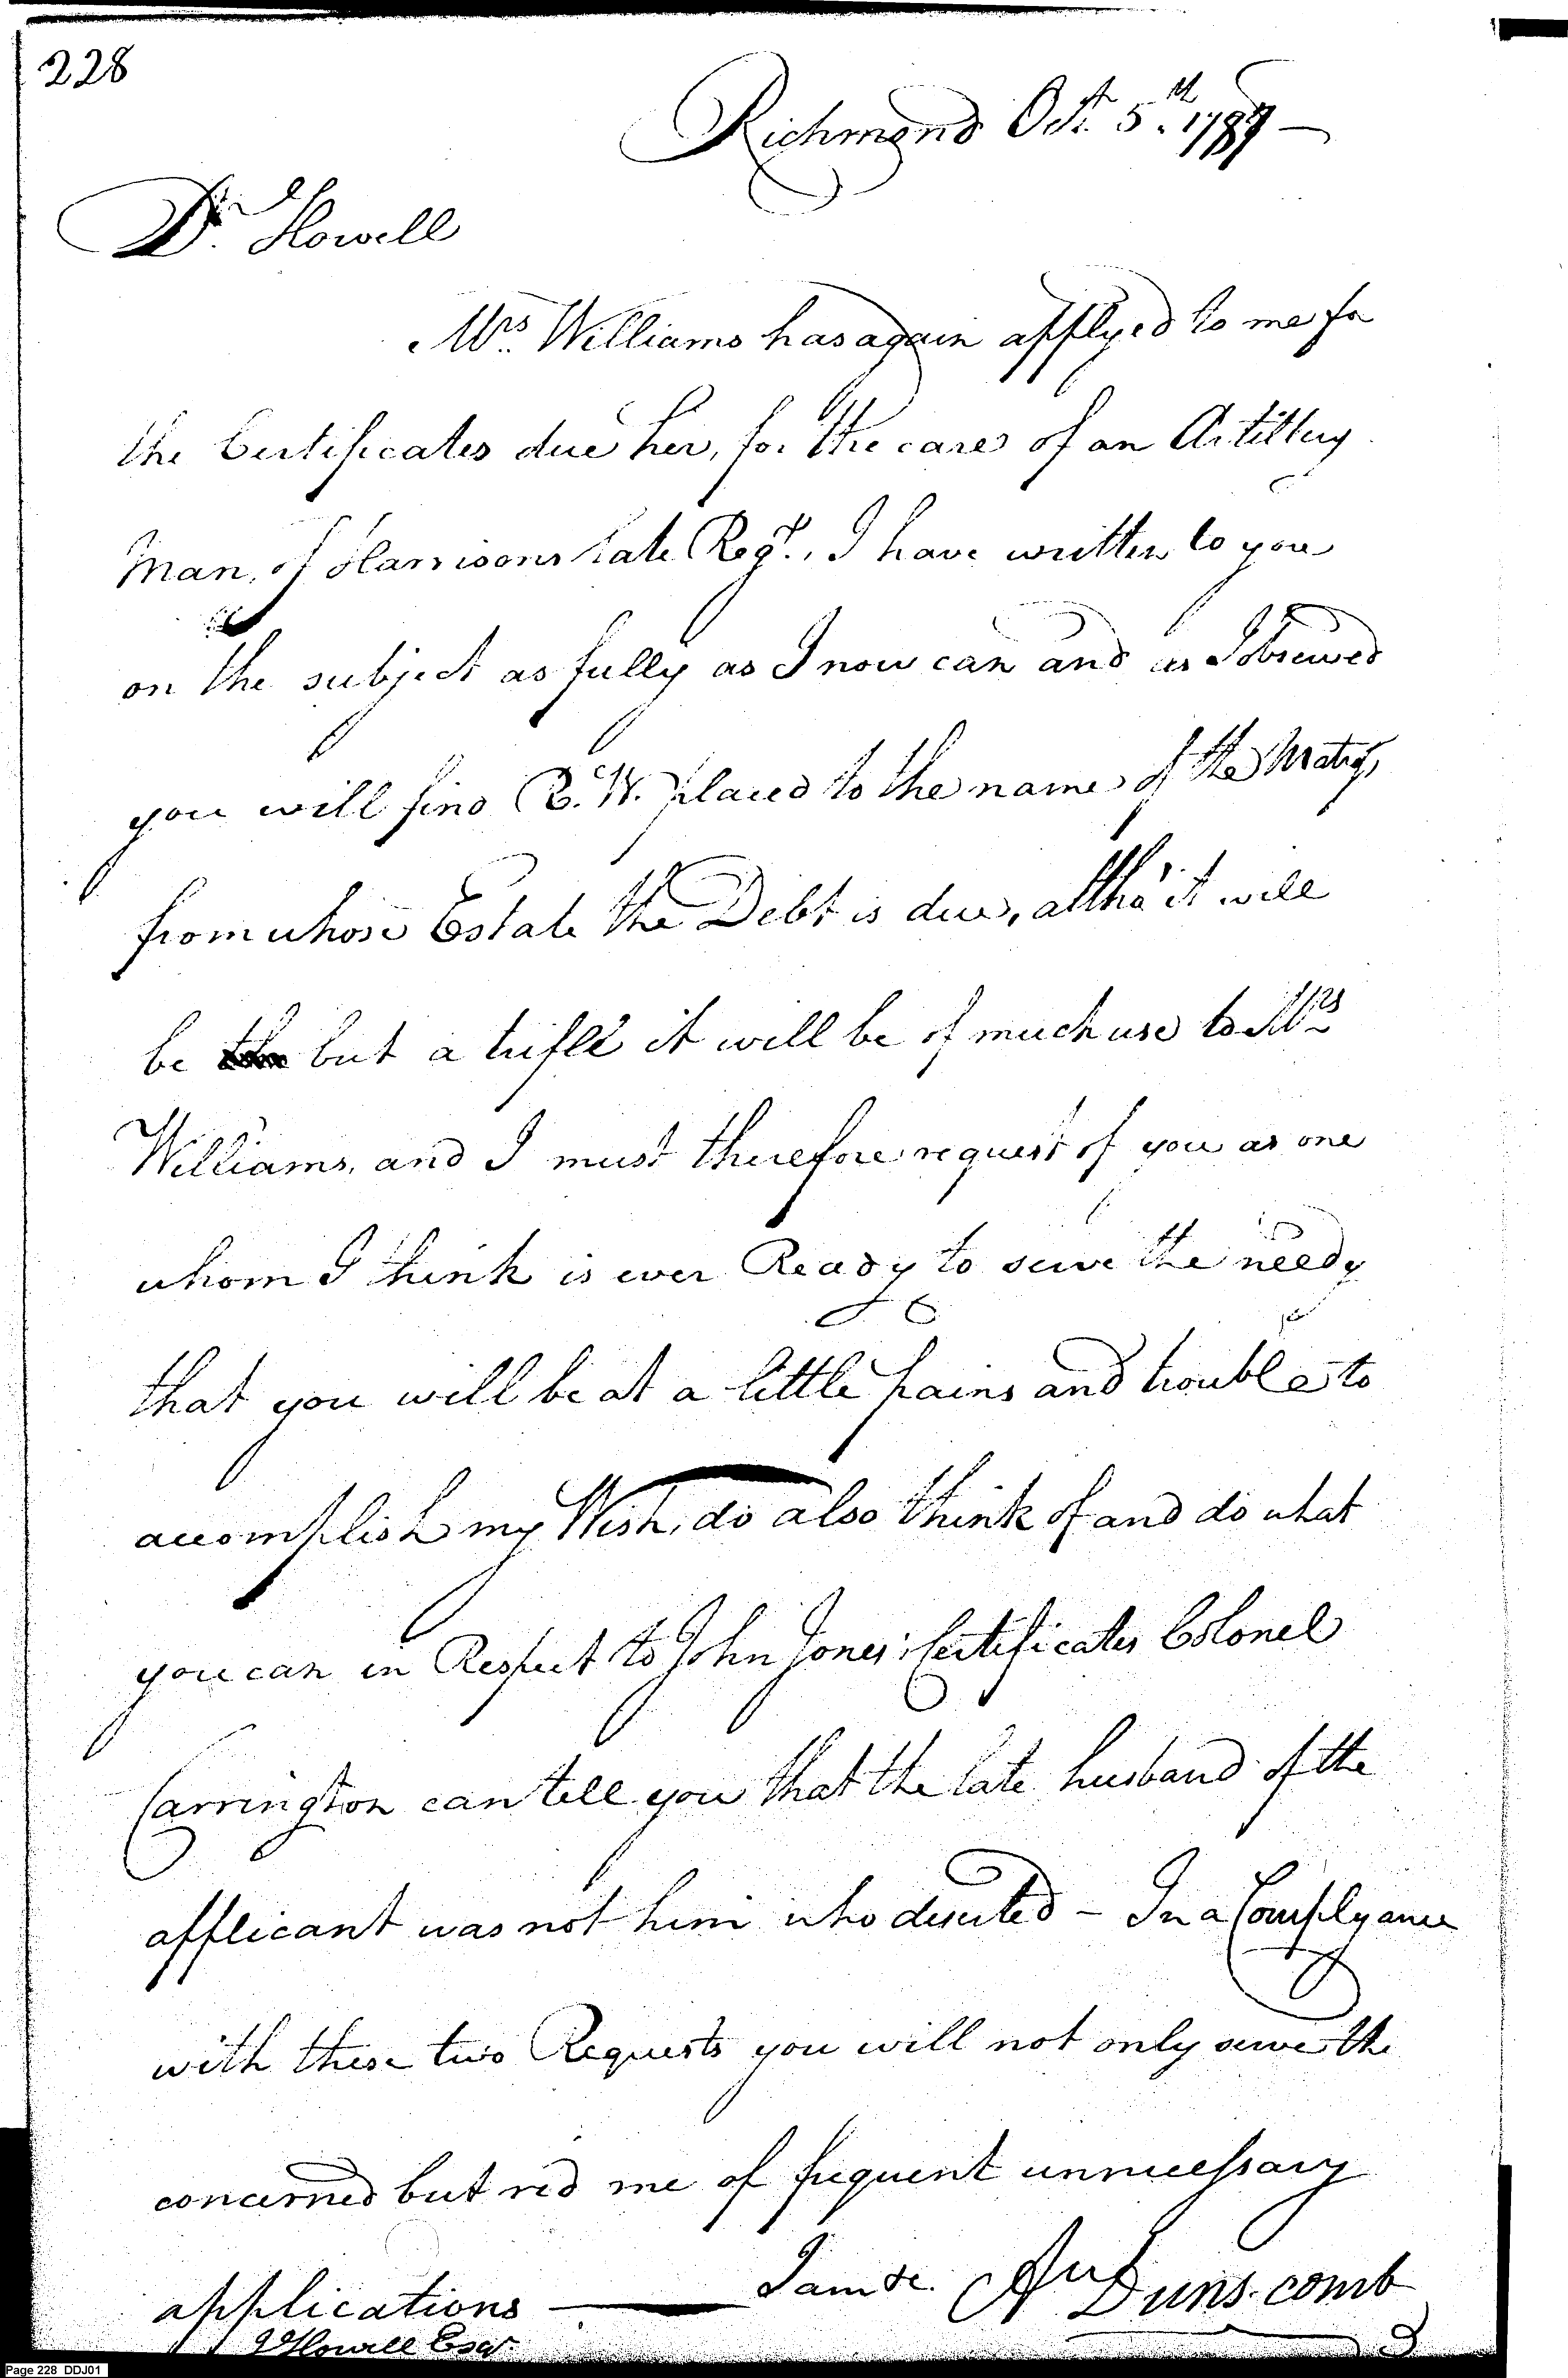 228
Richmond Octr. 5th. 1787 —
Dr. Howell
Mrs. Williams has again applyed to me for
the Certificates due her, for the cares of an Artillery
Man, of Harrisons late Regt., I have written to you
on the subject as fully as I now can and as I observed
you will find placed to the name of the Matross,
from whose Estate the Debt is due, altho' it will
be but a trifle it will be of much use to Mrs
Williams, and I must therefore request of you as one
whom I think is ever Ready to serve the needy
that you will be at a little pains and trouble to
accomplish my Wish, do also think of and do what
you can in Respect to John Jones's Certificates Colonel
Carrington can tell you that the late husband of the
applicant was not him who deserted – In a Complyance
with these two Requests you will not only serve the
concerned but rid me of frequent unnecessary
applications — I am &c. Duns-comb
Howell Esqr.
Page 228 DDJ01